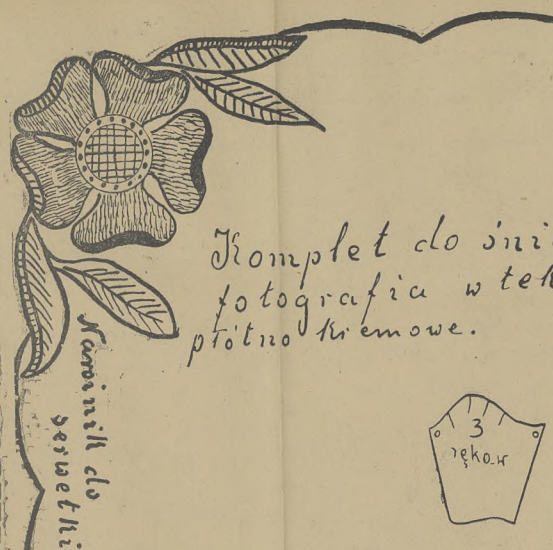 Komplet do śni
fotografia w tek
płótno kremowe.
Narożnik do
serwetki
3
rękaw